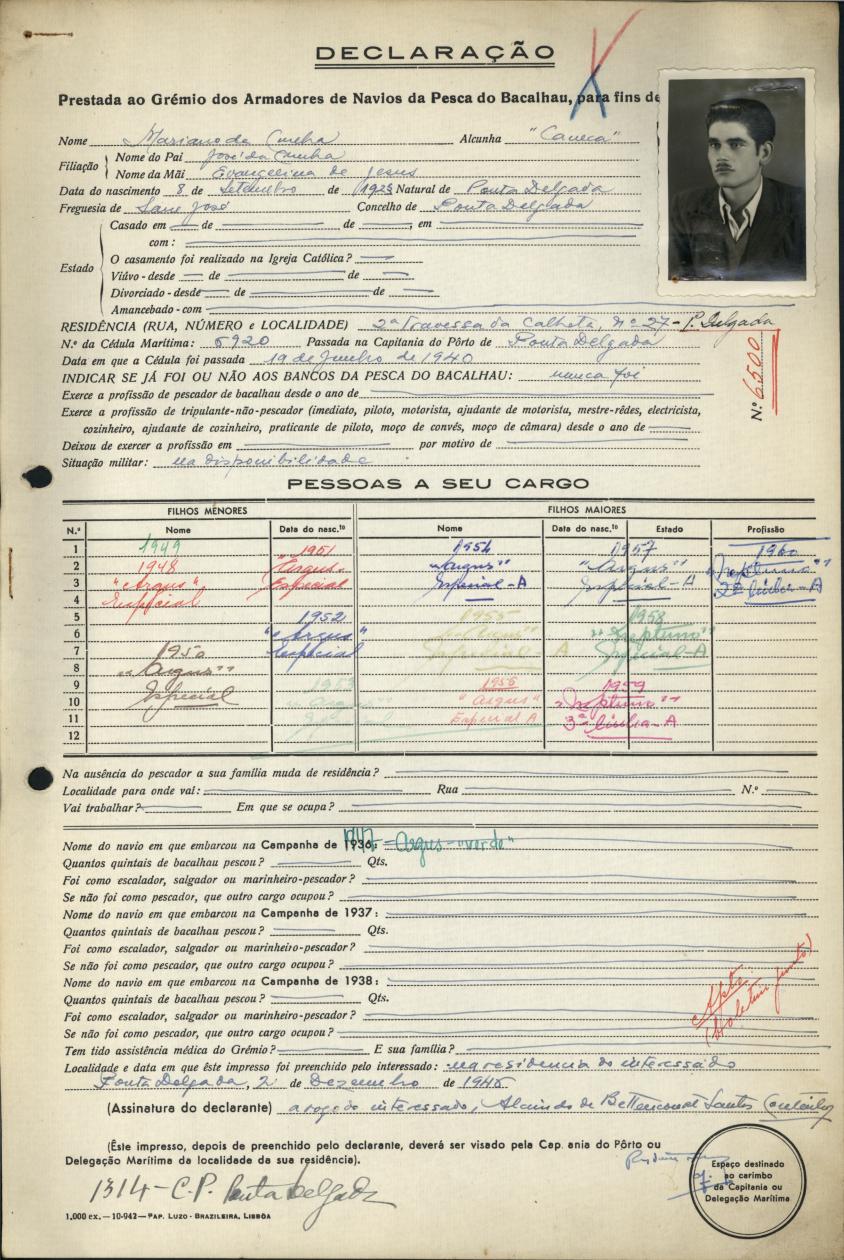 DECLARAÇÃO
Prestada ao Grémio dos Armadores de Navios da Pesca do Bacalhau, para fins de
Nome Mariano da Cunha Alcunha "Caneca"
Filiação Nome do Pai José da Cunha
Nome da Mãi Evangelina de Jesus
Data do nascimento 8 de Setembro de 1923 Natural de Ponta Delgada
Freguesia de São José Concelho de Ponta Delgada
Casado em de de , em
com:
Estado O casamento foi realizado na Igreja Católica?
Viúvo - desde de de
Divorciado - desde de de
Amancebado - com
RESIDÊNCIA (RUA, NÚMERO e LOCALIDADE) 2ª Travessa da Calheta, nº 27 - P. Delgada
N.º da Cédula Marítima: 6920 Passada na Capitania do Pôrto de Ponta Delgada
Data em que a Cédula foi passada 19 de Junho de 1940
N.º 6500
INDICAR SE JÁ FOI OU NÃO AOS BANCOS DA PESCA DO BACALHAU: nunca foi
Exerce a profissão de pescador de bacalhau desde o ano de
Exerce a profissão de tripulante-não-pescador (imediato, piloto, motorista, ajudante de motorista, mestre-rêdes, electricista,
cozinheiro, ajudante de cozinheiro, praticante de piloto, moço de convés, moço de câmara) desde o ano de
Deixou de exercer a profissão em por motivo de
Situação militar: na disponibilidade
PESSOAS A SEU CARGO
FILHOS MENORES FILHOS MAIORES
N.º Nome Data do nasc.to Nome Data do nasc.to Estado Profissão
1 1949 1951 1954 1957 1960
2 1948 "Argus" "Argus" "Argus" "Neptuno"
3 "Argus" Especial Especial-A Especial-A 2ª linha-A
4 Especial
5 1952 1955 1958
6 "Argus" "Argus" "Neptuno"
7 1950 Especial Especial A Especial-A
8 "Argus"
9 Especial 1953 1956 1959
10 "Argus" "Argus" "Neptuno"
11 Especial Especial A 3ª linha-A
12
Na ausência do pescador a sua família muda de residência?
Localidade para onde vai: Rua N.º
Vai trabalhar? Em que se ocupa?
Nome do navio em que embarcou na Campanha de 1936: 1947 - Argus - "verde"
Quantos quintais de bacalhau pescou? Qts.
Foi como escalador, salgador ou marinheiro-pescador?
Se não foi como pescador, que outro cargo ocupou?
Nome do navio em que embarcou na Campanha de 1937:
Quantos quintais de bacalhau pescou? Qts.
Foi como escalador, salgador ou marinheiro-pescador?
Se não foi como pescador, que outro cargo ocupou?
Nome do navio em que embarcou na Campanha de 1938:
Quantos quintais de bacalhau pescou? Qts.
Foi como escalador, salgador ou marinheiro-pescador?
Se não foi como pescador, que outro cargo ocupou?
Apto.
(Boletim junto)
Tem tido assistência médica do Grémio? E sua família?
Localidade e data em que êste impresso foi preenchido pelo interessado: na residencia do interessado
Ponta Delgada, 2 de Dezembro de 1946
(Assinatura do declarante) a rogo do interessado, Alcindo de Bettencourt Santos
(Êste impresso, depois de preenchido pelo declarante, deverá ser visado pela Cap. ania do Pôrto ou
Delegação Marítima da localidade da sua residência).
Espaço destinado
ao carimbo
da Capitania ou
Delegação Marítima
1314 - C.P. Ponta Delgada
1.000 ex. — 10-942 — PAP. LUZO-BRAZILEIRA, LISBÔA